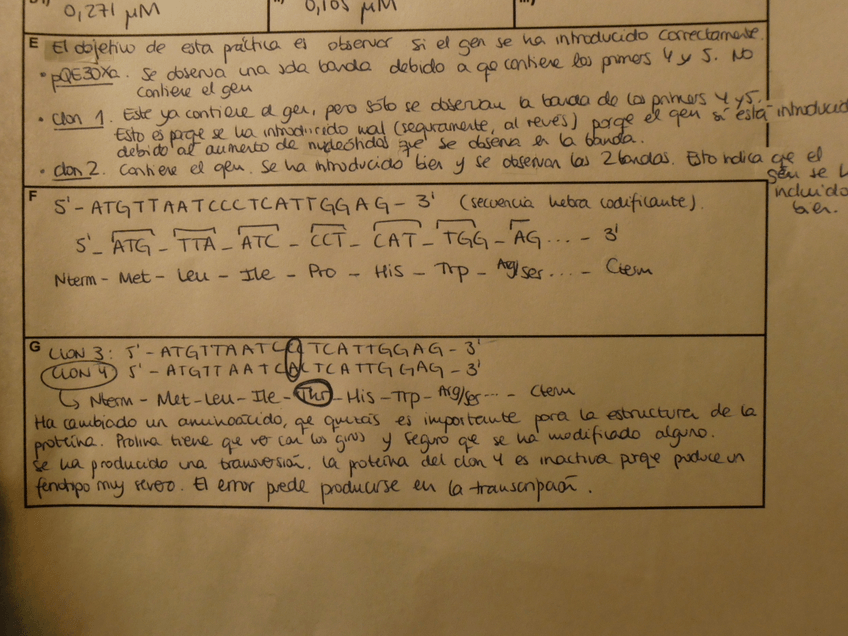 0,271 μM
0,105 μM
E El objetivo de esta práctica es observar si el gen se ha introducido correctamente.
• pQE30Xa. Se observa una sola banda debido a que contiene los primers 4 y 5. No
contiene el gen
• Clon 1. Este ya contiene el gen, pero sólo se observan la banda de los primers 4 y 5.
Esto es porqe se ha introducido mal (seguramente, al revés) porqe el gen sí está introducido
debido al aumento de nucleótidos qe se observa en la banda.
• Clon 2. Contiene el gen. Se ha introducido bien y se observan las 2 bandas. Esto indica que el
gen se h
incluido
bien.
F 5' - ATGTTAATCCCTCATTGGAG - 3' (secuencia hebra codificante).
5' - ATG - TTA - ATC - CCT - CAT - TGG - AG ... - 3'
Nterm - Met - Leu - Ile - Pro - His - Trp - Arg/Ser ... - Cterm
G CLON 3: 5' - ATGTTAATCCCTCATTGGAG - 3'
CLON 4 5' - ATGTTAATCACTCATTGGAG - 3'
↳ Nterm - Met - Leu - Ile - Thr - His - Trp - Arg/Ser ... - Cterm
Ha cambiado un aminoácido, qe quizás es importante para la estructura de la
proteína. Prolina tiene que ver con los giros y seguro que se ha modificado alguno.
Se ha producido una transversión. La proteína del clon 4 es inactiva porqe produce un
fenotipo muy severo. El error puede producirse en la transcripción.